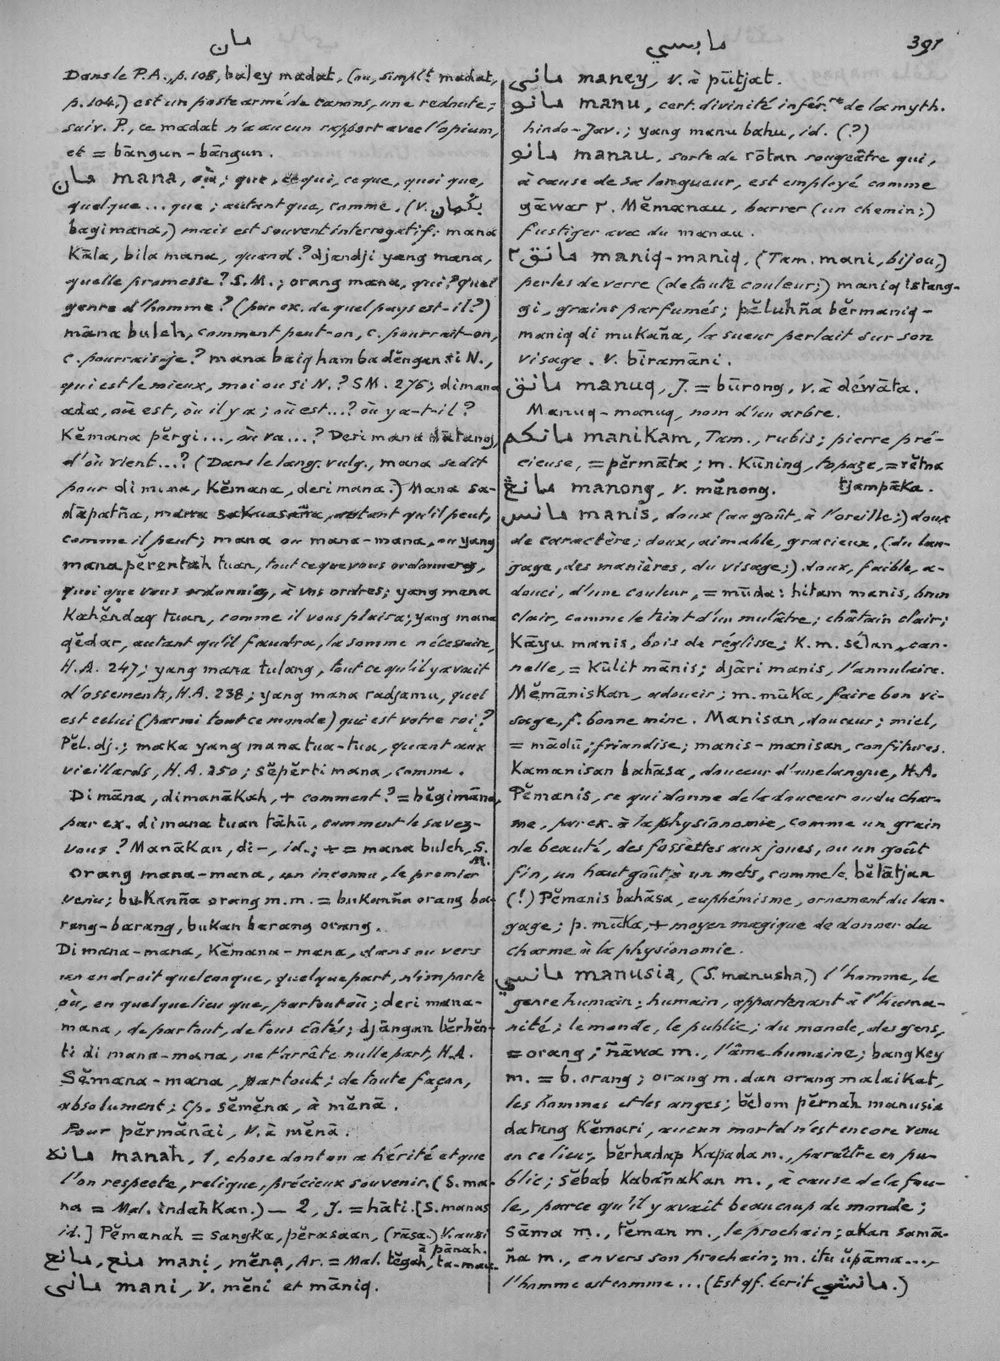 مان
مانسي
391
Dans le P.A., p. 108, baley madat, (ou, simplt. madat,
p. 104,) est un poste armé de canons, une redoute;
suiv. P., ce madat n'a aucun rapport avec l'opium,
et = bāngun-bāngun.
مان mana, où; que, ce qui, ce que, quoi que,
quelque ... que; autant que, comme. (V. بگمان
bagimana,) mais est souvent interrogatif: mana
Kāla, bila mana, quand? djandji yang mana,
quelle promesse? S.M.; orang mana, qui? quel
genre d'homme? (par ex. de quel pays est-il?)
māna buleh, comment peut-on, c. pourrait-on,
c. pourrais-je? mana baiq hamba děngan si N.,
qui est le mieux, moi ou si N.? SM. 276; dimana
ada, où est, où il y a; où est...? où y a-t-il?
Kěmana pěrgi ..., où va ...? Deri mana dātang,
d'où vient ...? (Dans le lang. vulg., mana se dit
pour di mana, Kěmana, deri mana.) Mana sa-
dāpatña, mana sakuasaña, autant qu'il peut,
comme il peut; mana ou mana-mana, ou yang
mana pěrentah tuan, tout ce que vous ordonnerez,
quoi que vous ordonniez, à vos ordres; yang mana
Kahěndaq tuan, comme il vous plaira; yang mana
qědar, autant qu'il faudra, la somme nécessaire,
H.A. 247; yang mana tulang, tout ce qu'il y avait
d'ossements, H.A. 238; yang mana radjamu, quel
est celui (parmi tout ce monde) qui est votre roi?
Pěl. dj.; maka yang mana tua-tua, quant aux
vieillards, H.A. 250; sěpěrti mana, comme.
Di māna, dimanāKah, + comment? = běgimāna,
par ex. di mana tuan tāhū, comment le savez-
vous? ManāKan, di-, id.; + = mana buleh, S.
M.
Orang mana-mana, un inconnu, le premier
venu; buKanña orang m.m. = buKanña orang ba-
rang-barang, bukan barang orang.
Di mana-mana, Kěmana-mana, dans ou vers
un endroit quelconque, quelque part, n'importe
où, en quelque lieu que, partout où; deri mana-
mana, de partout, de tous côtés; djāngan běrhěn-
ti di mana-mana, ne t'arrête nulle part, H.A.
Sěmana-mana, partout; de toute façon,
absolument; Cp. sěměna, à měnā.
Pour pěrmānāi, V. à měnā.
مانه manah, 1, chose dont on a hérité et que
l'on respecte, relique, précieux souvenir. (S. ma-
na = Mal. indahKan.) — 2, J. = hāti. [S. manas
id.] Pěmanah = sangKa, pěrasaan, (rāsa.) V. aussi
à pānah.
مانع, منع manị, měnạ, Ar. = Mal. těgah, ta-mau.
ماني mani, V. měni et māniq.
ماني maney, V. à pūtjat.
مانو manu, cert. divinité infér.re de la myth.
hindo-Jav.; yang manu bahu, id. (?)
مانو manau, sorte de rōtan rougeâtre qui,
à cause de sa longueur, est employé comme
gāwar ٢. Měmanau, barrer (un chemin;)
fustiger avec du manau.
مانق٢ maniq-maniq, (Tam. mani, bijou,)
perles de verre (de toute couleur;) maniq istang-
gi, grains parfumés; pěluhña běrmaniq-
maniq di mukaña, la sueur perlait sur son
visage. V. bīramāni.
مانق manuq, J. = būrong, V. à déwāta.
Manuq-manuq, nom d'un arbre.
مانكم maniKam, Tam., rubis; pierre pré-
cieuse, = pěrmāta; m. Kūning, topaze, = rětna
tjampāka.
مانڠ manong, V. měnong.
مانس manis, doux (au goût, à l'oreille;) doux
de caractère; doux, aimable, gracieux, (du lan-
gage, des manières, du visage;) doux, faible, a-
douci, d'une couleur, = mūda: hitam manis, brun
clair, comme le teint d'un mulâtre; châtain clair;
Kāyu manis, bois de réglisse; K. m. sélan, can-
nelle, = Kūlit mānis; djāri manis, l'annulaire.
MěmānisKan, adoucir; m. mūka, faire bon vi-
sage, f. bonne mine. Manisan, douceur; miel,
= mādū; friandise; manis-manisan, confitures.
Kamanisan bahāsa, douceur d'une langue, H.A.
Pěmanis, ce qui donne de la douceur ou du char-
me, par ex. à la physionomie, comme un grain
de beauté, des fossettes aux joues, ou un goût
fin, un haut goût, à un mets, comme le bělātjan
(!) Pěmanis bahāsa, euphémisme, ornement du lan-
gage; p. mūka, + moyen magique de donner du
charme à la physionomie.
مانسي manusia, (S. manusha,) l'homme, le
genre humain; humain, appartenant à l'huma-
nité; le monde, le public; du monde, des gens,
= orang; ñāwa m., l'âme humaine; bangKey
m. = b. orang; orang m. dan orang malaikat,
les hommes et les anges; bělom pěrnah manusia
datang Kěmari, aucun mortel n'est encore venu
en ce lieu; běrhadap Kapada m., paraître en pu-
blic; sěbab KabāñaKan m., à cause de la fou-
le, parce qu'il y avait beaucoup de monde;
sāma m., těman m., le prochain; akan samā-
ña m., envers son prochain; m. itu ūpāma...,
l'homme est comme ... (Est qf. écrit مانشي.)